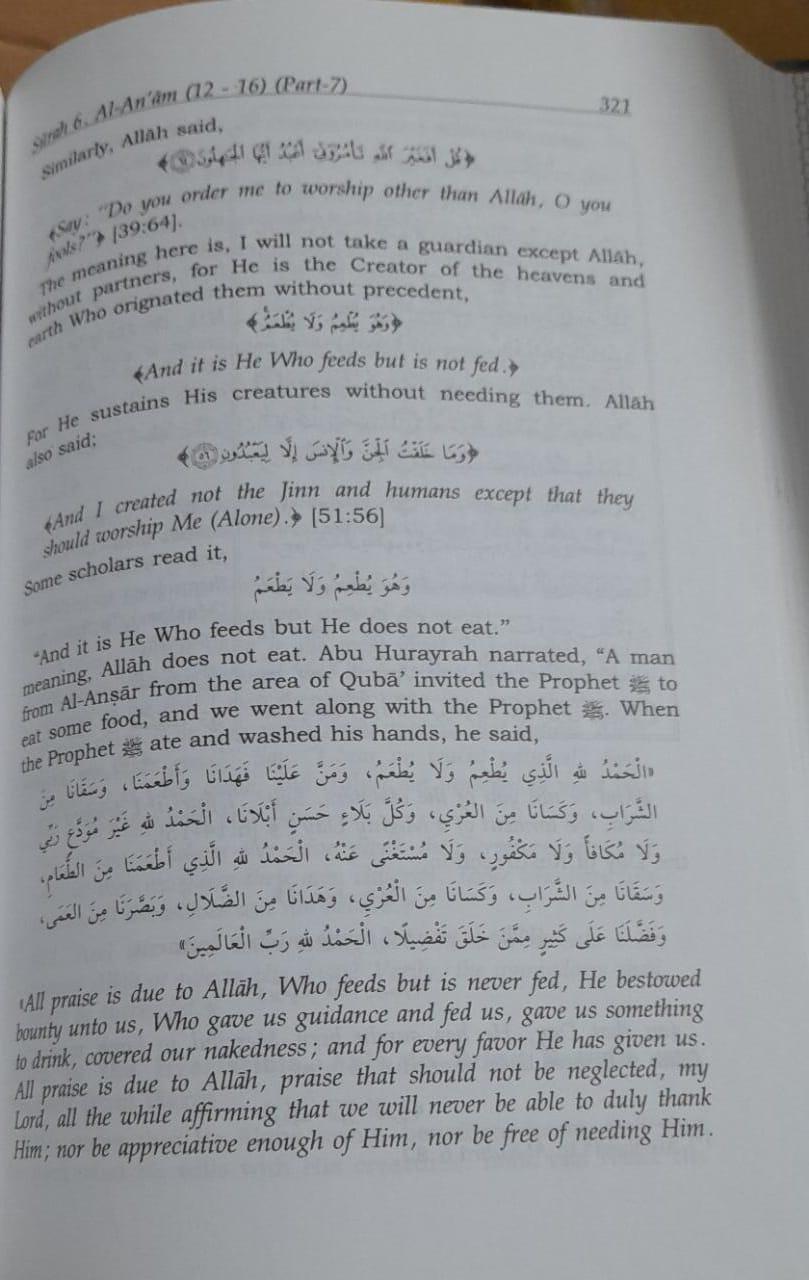 Sūrah 6. Al-An'ām (12 - 16) (Part-7) 321
Similarly, Allāh said,
﴿قُلْ أَفَغَيْرَ اللَّهِ تَأْمُرُوٓنِّيٓ أَعْبُدُ أَيُّهَا الْجَـٰهِلُونَ ٦٤﴾
﴾Say: "Do you order me to worship other than Allāh, O you
fools?"﴿ [39:64].
The meaning here is, I will not take a guardian except Allāh,
without partners, for He is the Creator of the heavens and
earth Who orignated them without precedent,
﴿وَهُوَ يُطْعِمُ وَلَا يُطْعَمُ﴾
﴾And it is He Who feeds but is not fed.﴿
For He sustains His creatures without needing them. Allāh
also said;
﴿وَمَا خَلَقْتُ الْجِنَّ وَالْإِنسَ إِلَّا لِيَعْبُدُونِ ٥٦﴾
﴾And I created not the Jinn and humans except that they
should worship Me (Alone).﴿ [51:56]
Some scholars read it,
وَهُوَ يُطْعِمُ وَلَا يَطْعَمُ
"And it is He Who feeds but He does not eat."
meaning, Allāh does not eat. Abu Hurayrah narrated, "A man
from Al-Anṣār from the area of Qubā' invited the Prophet ﷺ to
eat some food, and we went along with the Prophet ﷺ. When
the Prophet ﷺ ate and washed his hands, he said,
«الْحَمْدُ للهِ الَّذِي يُطْعِمُ وَلَا يُطْعَمُ، وَمَنَّ عَلَيْنَا فَهَدَانَا وَأَطْعَمَنَا، وَسَقَانَا مِنَ
الشَّرَابِ، وَكَسَانَا مِنَ الْعُرْيِ، وَكُلَّ بَلَاءٍ حَسَنٍ أَبْلَانَا، الْحَمْدُ للهِ غَيْرَ مُوَدَّعٍ رَبِّي
وَلَا مُكَافَأً وَلَا مَكْفُورٍ، وَلَا مُسْتَغْنًى عَنْهُ، الْحَمْدُ للهِ الَّذِي أَطْعَمَنَا مِنَ الطَّعَامِ،
وَسَقَانَا مِنَ الشَّرَابِ، وَكَسَانَا مِنَ الْعُرْيِ، وَهَدَانَا مِنَ الضَّلَالِ، وَبَصَّرَنَا مِنَ الْعَمَى،
وَفَضَّلَنَا عَلَى كَثِيرٍ مِمَّنْ خَلَقَ تَفْضِيلًا، الْحَمْدُ للهِ رَبِّ الْعَالَمِينَ»
«All praise is due to Allāh, Who feeds but is never fed, He bestowed
bounty unto us, Who gave us guidance and fed us, gave us something
to drink, covered our nakedness; and for every favor He has given us.
All praise is due to Allāh, praise that should not be neglected, my
Lord, all the while affirming that we will never be able to duly thank
Him; nor be appreciative enough of Him, nor be free of needing Him.